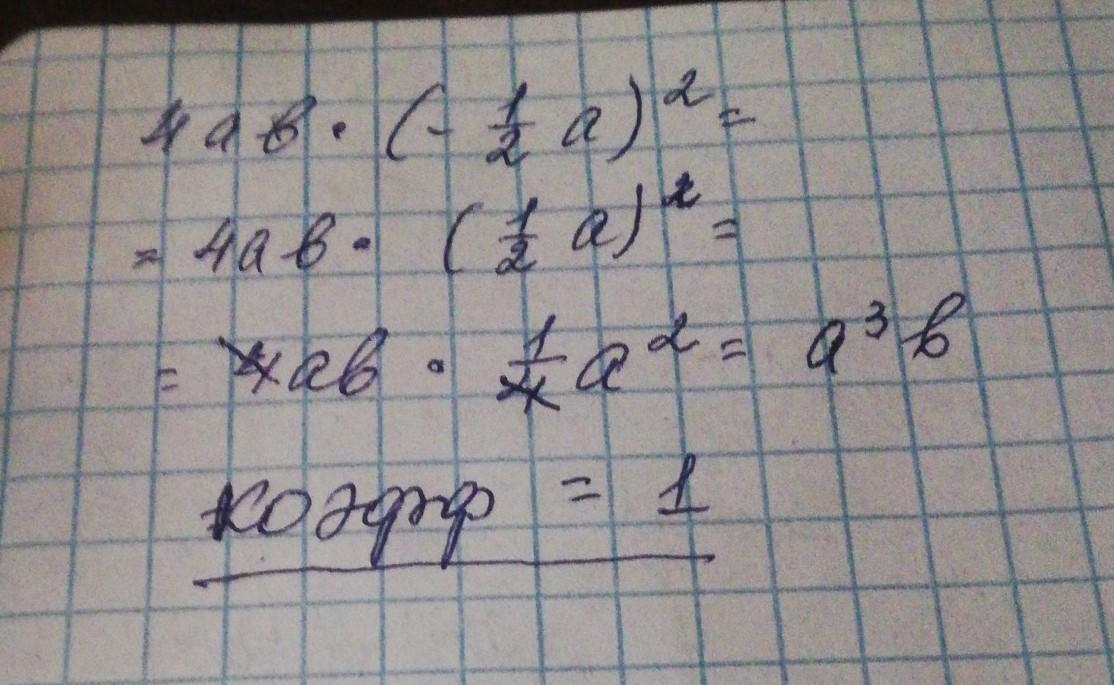 4ab · (- 1/2 a)² =
= 4ab · (1/2 a)² =
= 4ab · 1/4 a² = a³b
коэфф = 1